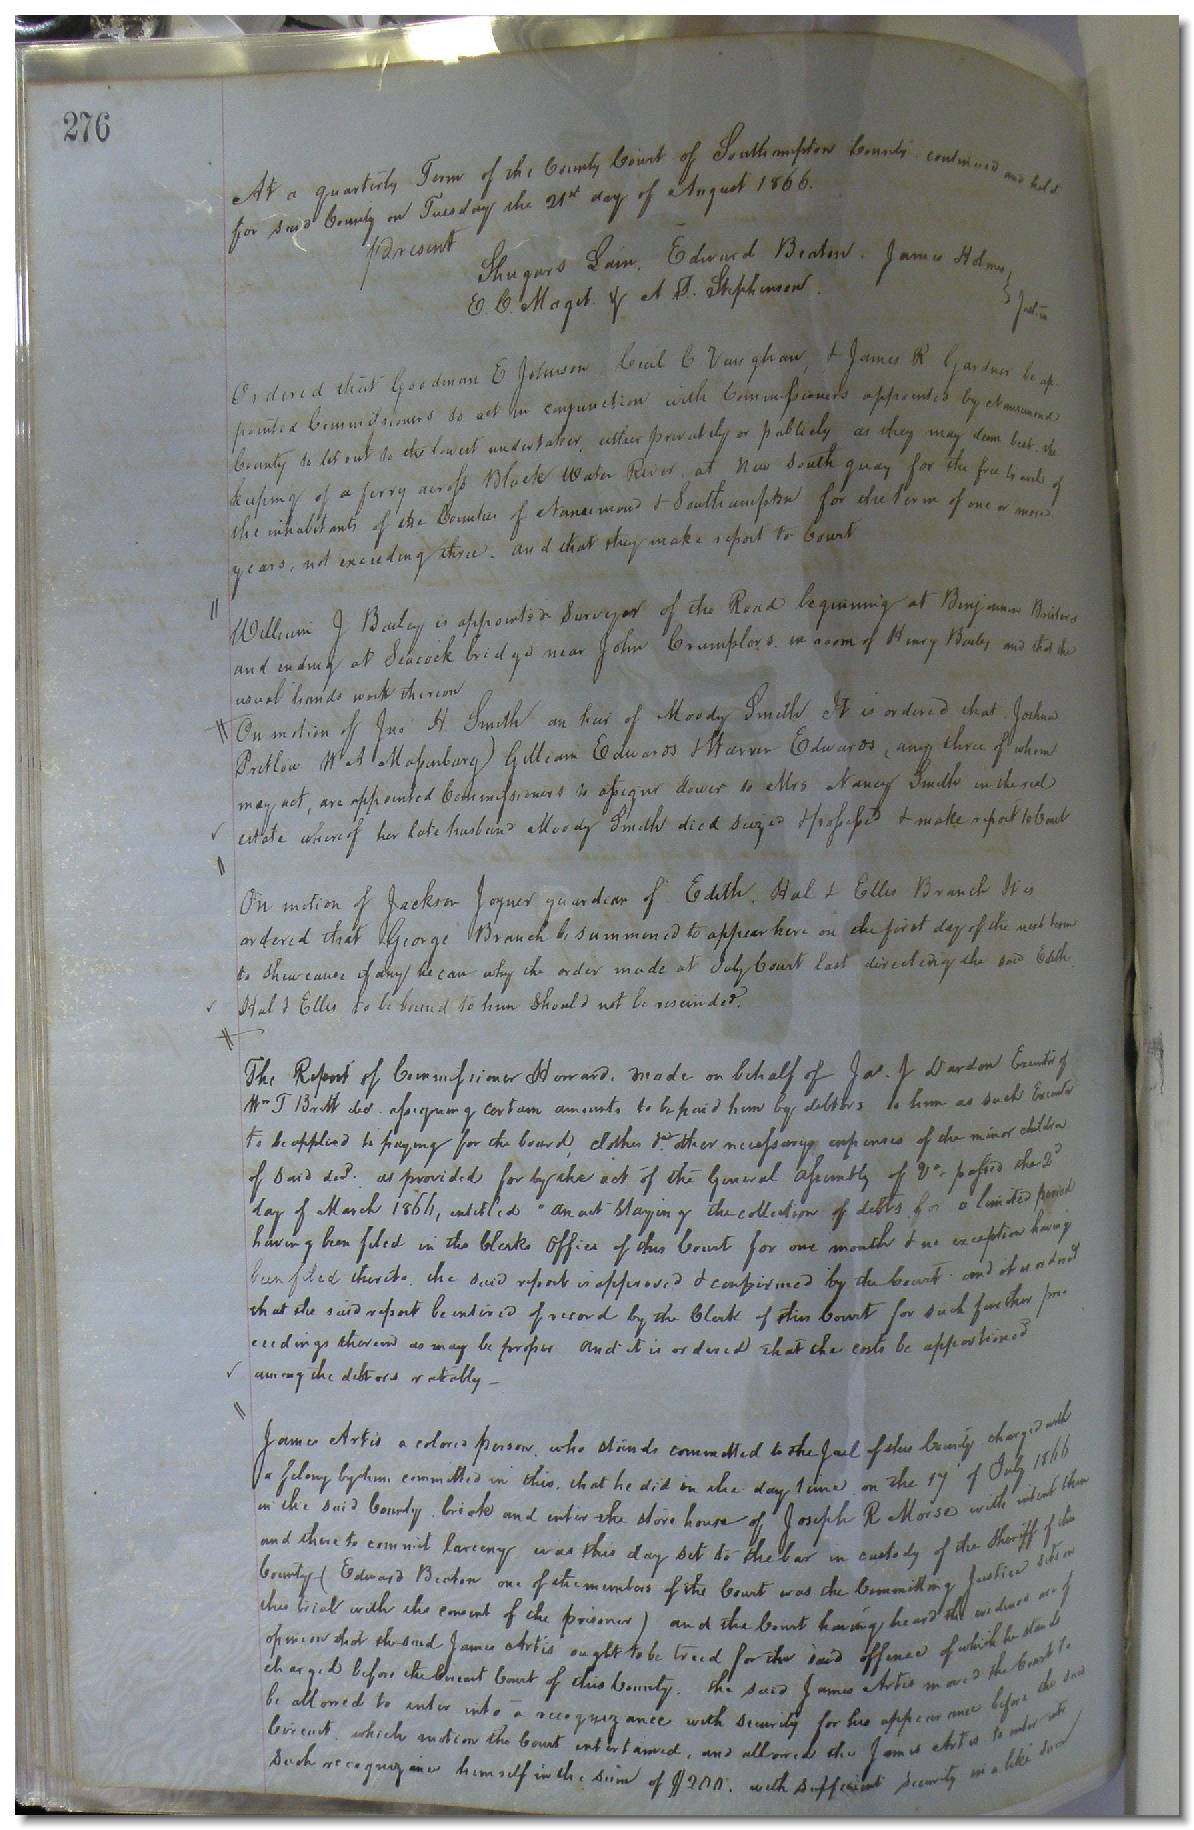 276
At a quarterly Term of the County Court of Southampton County continued and held
for said County on Tuesday the 21st day of August 1866.
Present
Shugars Lain, Edward Beaton, James Holmes
E. C. Maget & A S. Stephenson } Justices
Ordered that Goodman E Johnson Cecil C Vaughan, & James R Gardner be ap
pointed Commissioners to act in conjunction with Commissioners appointed by Nansemond
County to let out to the lowest undertaker, either privately or publicly as they may deem best the
keeping of a ferry across Black Water River, at New South quay for the free transit of
the inhabitants of the Counties of Nansemond & Southampton for the term of one or more
years, not exceeding three. and that they make report to Court
William J Bailey is appointed Surveyor of the Road beginning at Benjamin
and ending at Seacock bridge near John Crumplers in room of Henry Bailey and that the
usual hands work thereon
On motion of Jno H Smith an heir of Moody Smith It is ordered that Joshua
Pretlow W A Massenburg Gilliam Edwards & Warren Edwards, any three of whom
may act, are appointed Commissioners to assign dower to Mrs Nancy Smith in the real
estate whereof her late husband Moody Smith died seized & possessed & make report to Court
On motion of Jackson Joyner guardian of Edith, Hal & Ellis Branch It is
ordered that George Branch be summoned to appear here on the first day of the next term
to shew cause if any he can why the order made at July Court last directing the said Edith
Hal & Ellis to be bound to him should not be rescinded.
The Report of Commissioner Howard, made on behalf of Jas. J Dardon Executor of
Wm T Britt decd. assigning certain amounts to be paid him by debtors to him as such Executor
to be applied to paying for the board, clothes & other necessary expenses of the minor children
of said decd. as provided for by the act of the General Assembly of Va. passed the 2d
day of March 1866, entitled "an act staying the collection of debts for a limited period
having been filed in the Clerks Office of this Court for one month & no exception having
been filed thereto, the said report is approved & confirmed by the Court and it is ordered
that the said report be entered of record by the Clerk of this Court for such further pro
ceedings thereon as may be proper and it is ordered that the costs be apportioned
among the debtors ratably –
James Artis a colored person, who stands committed to the Jail of this County charged with
a felony by him committed in this, that he did in the day time on the 17th of July 1866
in the said County break and enter the store house of Joseph R Morse with intent then
and there to commit larceny was this day set to the bar in custody of the Sheriff of this
County (Edward Beaton one of the members of the Court was the Committing Justice sits on
this trial with the consent of the prisoner) and the Court having heard the evidence are of
opinion that the said James Artis ought to be tried for the said offence of which he stands
charged before the Circuit Court of this County. The said James Artis moved the Court to
be allowed to enter into a recognizance with security for his appearance before the said
Circuit, which motion the Court entertained, and allowed the James Artis to enter into
such recognizance himself in the sum of $200. with sufficient security in a like sum